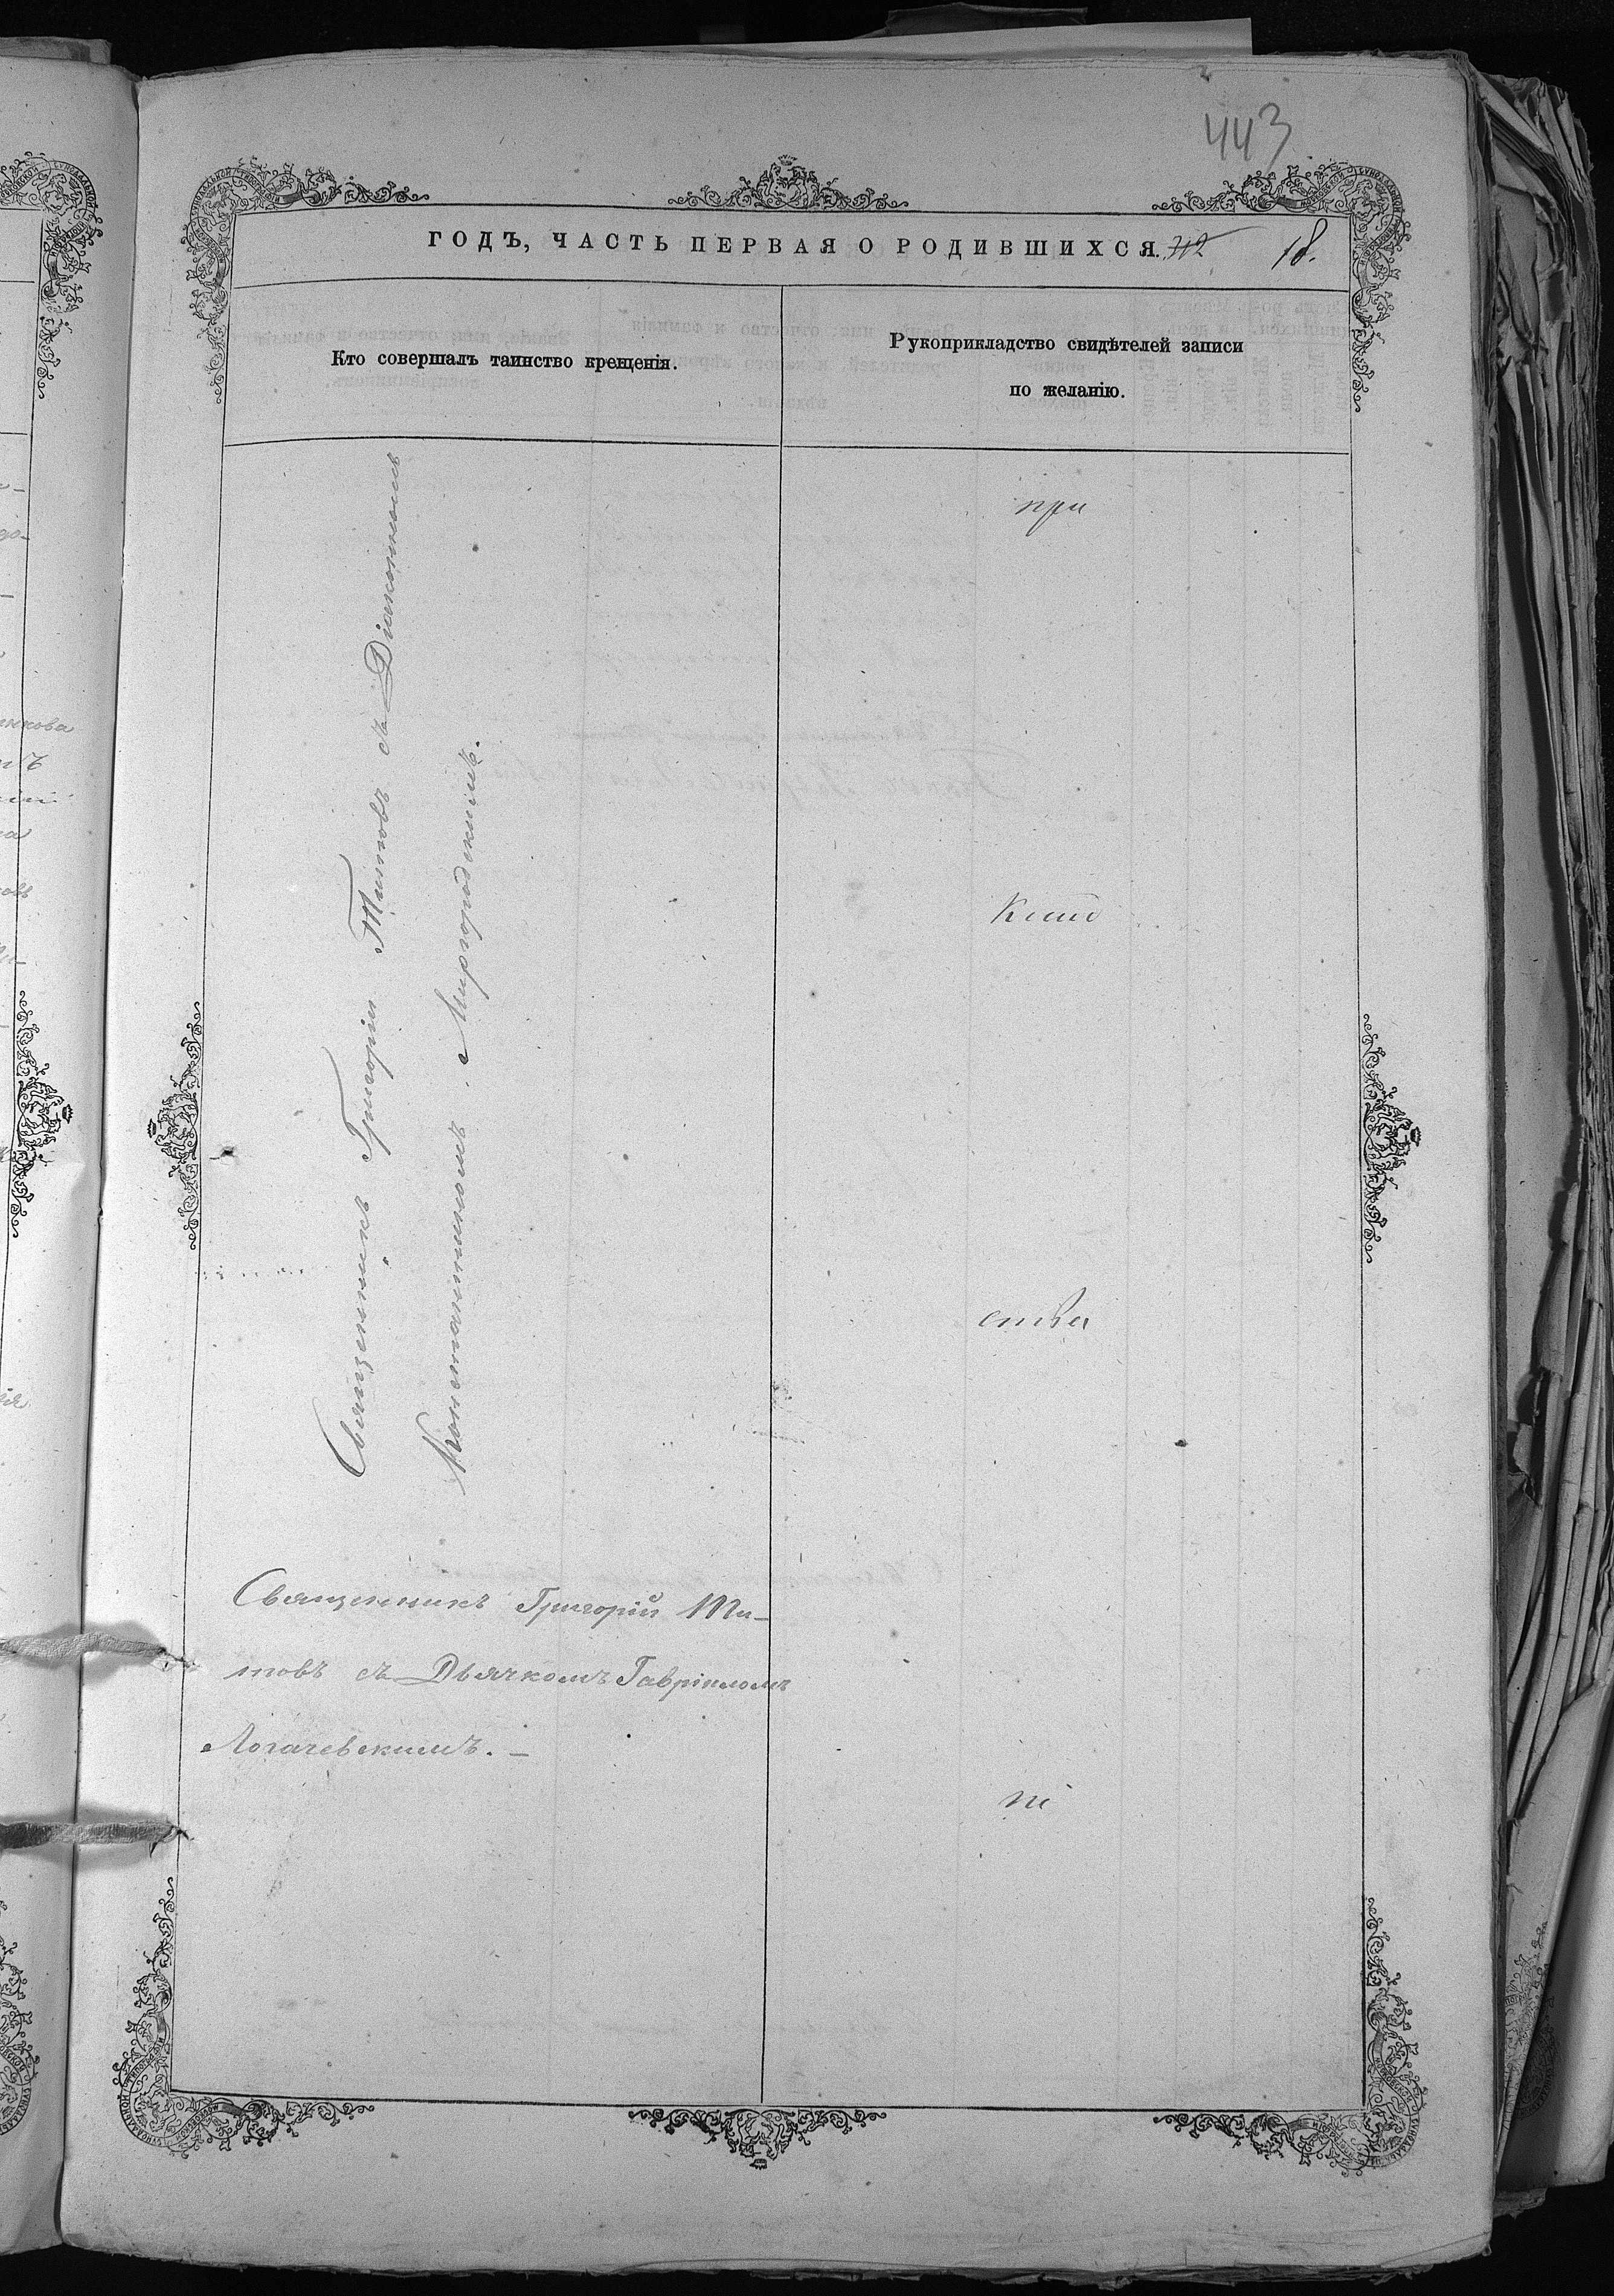 443
ГОДЪ, ЧАСТЬ ПЕРВАЯ О РОДИВШИХСЯ. 712 18.
Кто совершалъ таинство крещенія.
Рукоприкладство свидѣтелей записи
по желанію.
Священникъ Григорій Титовъ съ Діакономъ
Константиномъ Миргородскимъ.
при
клад
ства
Священникъ Григорій Ти-
товъ съ Дьячкомъ Гавріиломъ
Логачевскимъ. —